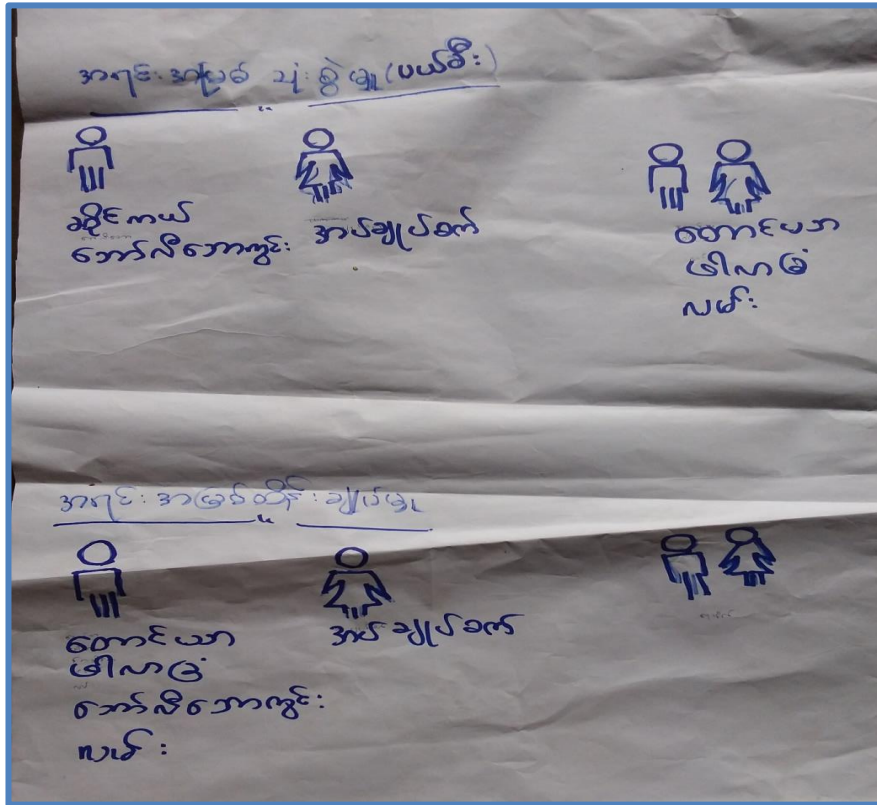 အရင်းအမြစ် သုံးစွဲမှု (ပယ်ခီး)
ဆိုင်ကယ်
ဘော်လီဘောကွင်း
အပ်ချုပ်စက်
တောင်ယာ
ဖါလာခြံ
လမ်း
အရင်းအမြစ်ထိန်းချုပ်မှု
တောင်ယာ
ဖါလာခြံ
ဘော်လီဘောကွင်း
လမ်း
အပ်ချုပ်စက်